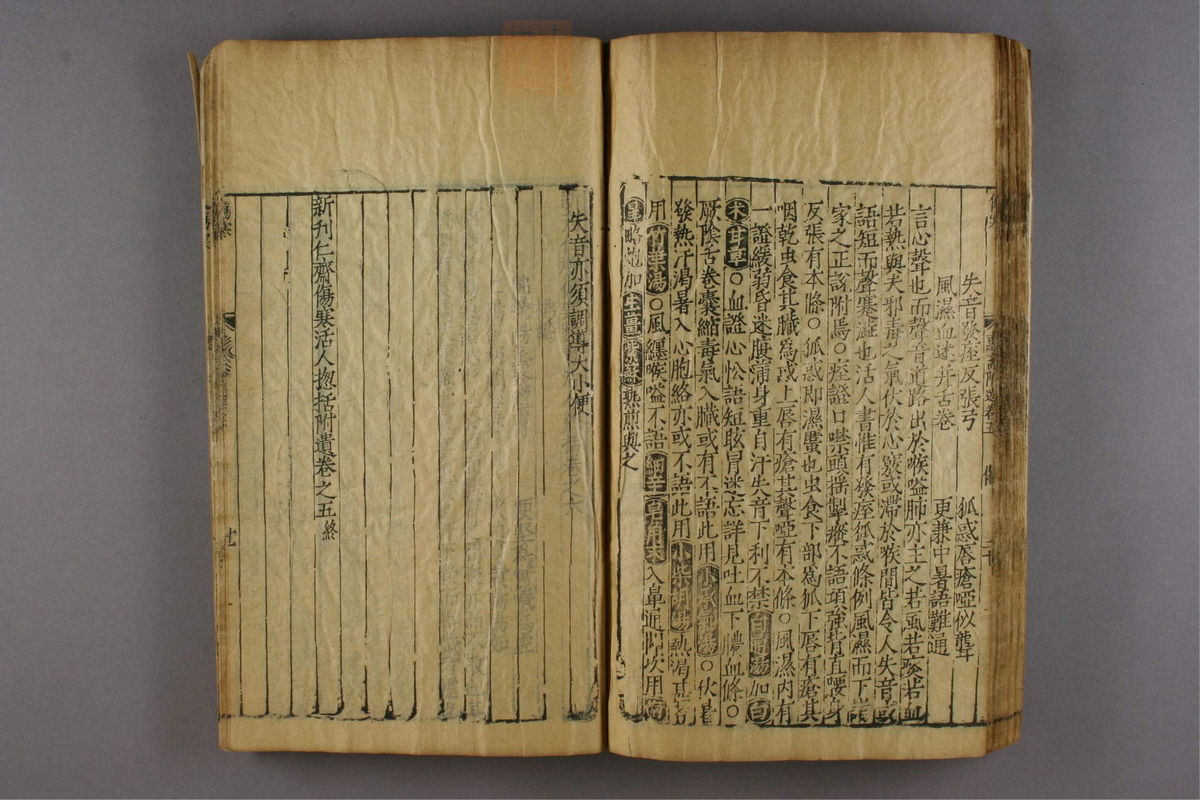 失音發痓反張弓　狐惑唇瘡啞似聾
風濕血迷并舌卷　更兼中暑語難通
言心聲也而聲音道路出於喉嗌肺亦主之若風若痰若血
若熱與夫邪毒之氣伏於心竅或滯於喉間皆令人失音或
語短而聲寒澁也活人書惟有發痓狐惑條例風濕而下諸
家之正該附焉○痓證口噤頭搖掣瘲不語項強背直腰身
反張有本條○狐惑即濕䘌也虫食下部為狐下唇有瘡其
咽乾虫食其臟為惑上唇有瘡其聲啞有本條○風濕內有
一證緩弱昏迷腹滿身重自汗失音下利不禁白通湯加白
朮甘草○血證心忪語短眩冒迷忘詳見吐血下膿血條○
厥陰舌卷囊縮毒氣入臟或有不語此用小承氣湯○伏暑
發熱汗渴暑入心胞絡亦或不語此用小柴胡湯熱渴甚者
用竹葉湯○風纏喉嗌不語細辛皂角末入鼻近吹用南
星略炮加生薑紫蘇熟煎與之
失音亦須調導大小便
新刊仁齋傷寒活人揔括附遺卷之五終